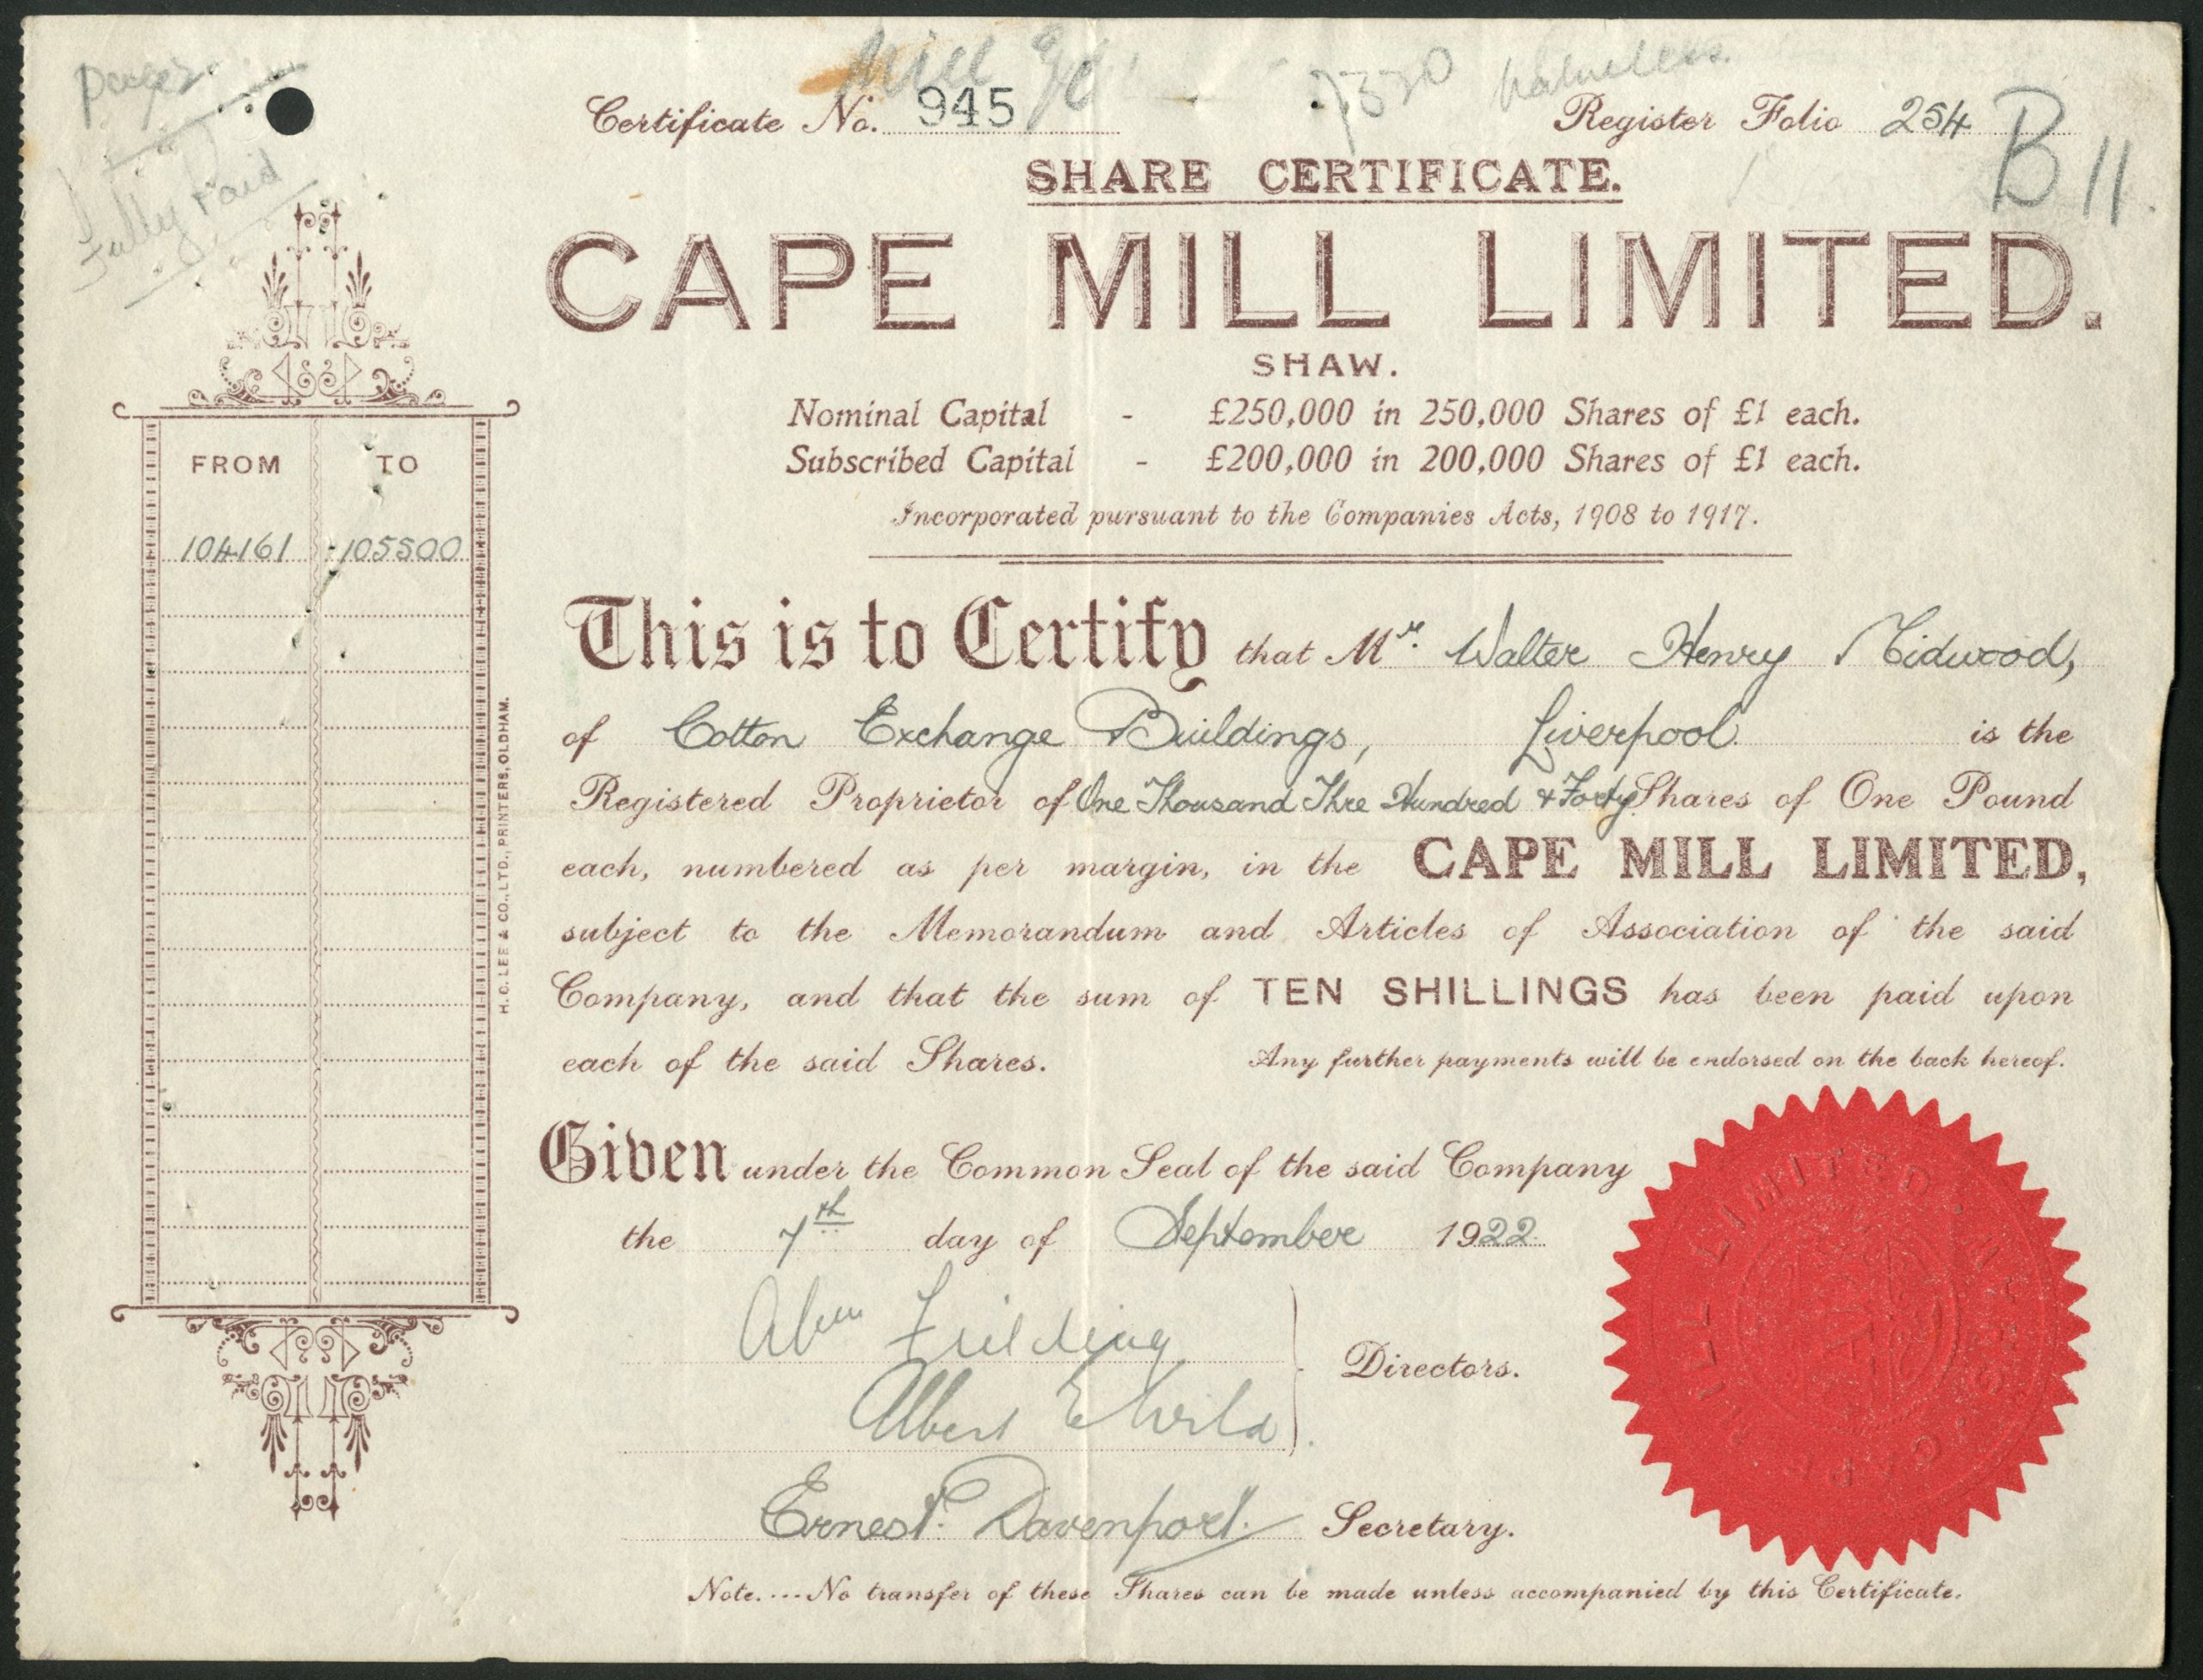 Mill
Valueless.
Fully Paid
Certificate No. 945
Register Folio 254
B 11.
SHARE CERTIFICATE.
CAPE MILL LIMITED.
SHAW.
Nominal Capital - £250,000 in 250,000 Shares of £1 each.
Subscribed Capital - £200,000 in 200,000 Shares of £1 each.
Incorporated pursuant to the Companies Acts, 1908 to 1917.
FROM TO
104161 105500
H. C. LEE & CO., LTD., PRINTERS, OLDHAM.
This is to Certify that Mr. Walter Henry Midwood,
of Cotton Exchange Buildings, Liverpool. is the
Registered Proprietor of One Thousand Thre Hundred & Forty Shares of One Pound
each, numbered as per margin, in the CAPE MILL LIMITED,
subject to the Memorandum and Articles of Association of the said
Company, and that the sum of TEN SHILLINGS has been paid upon
each of the said Shares. Any further payments will be endorsed on the back hereof.
Given under the Common Seal of the said Company
the 7th day of September 1922
Abm Fielding
Albert E Wild
Directors.
Ernest Davenport. Secretary.
Note.----No transfer of these Shares can be made unless accompanied by this Certificate.
CAPE MILL LIMITED